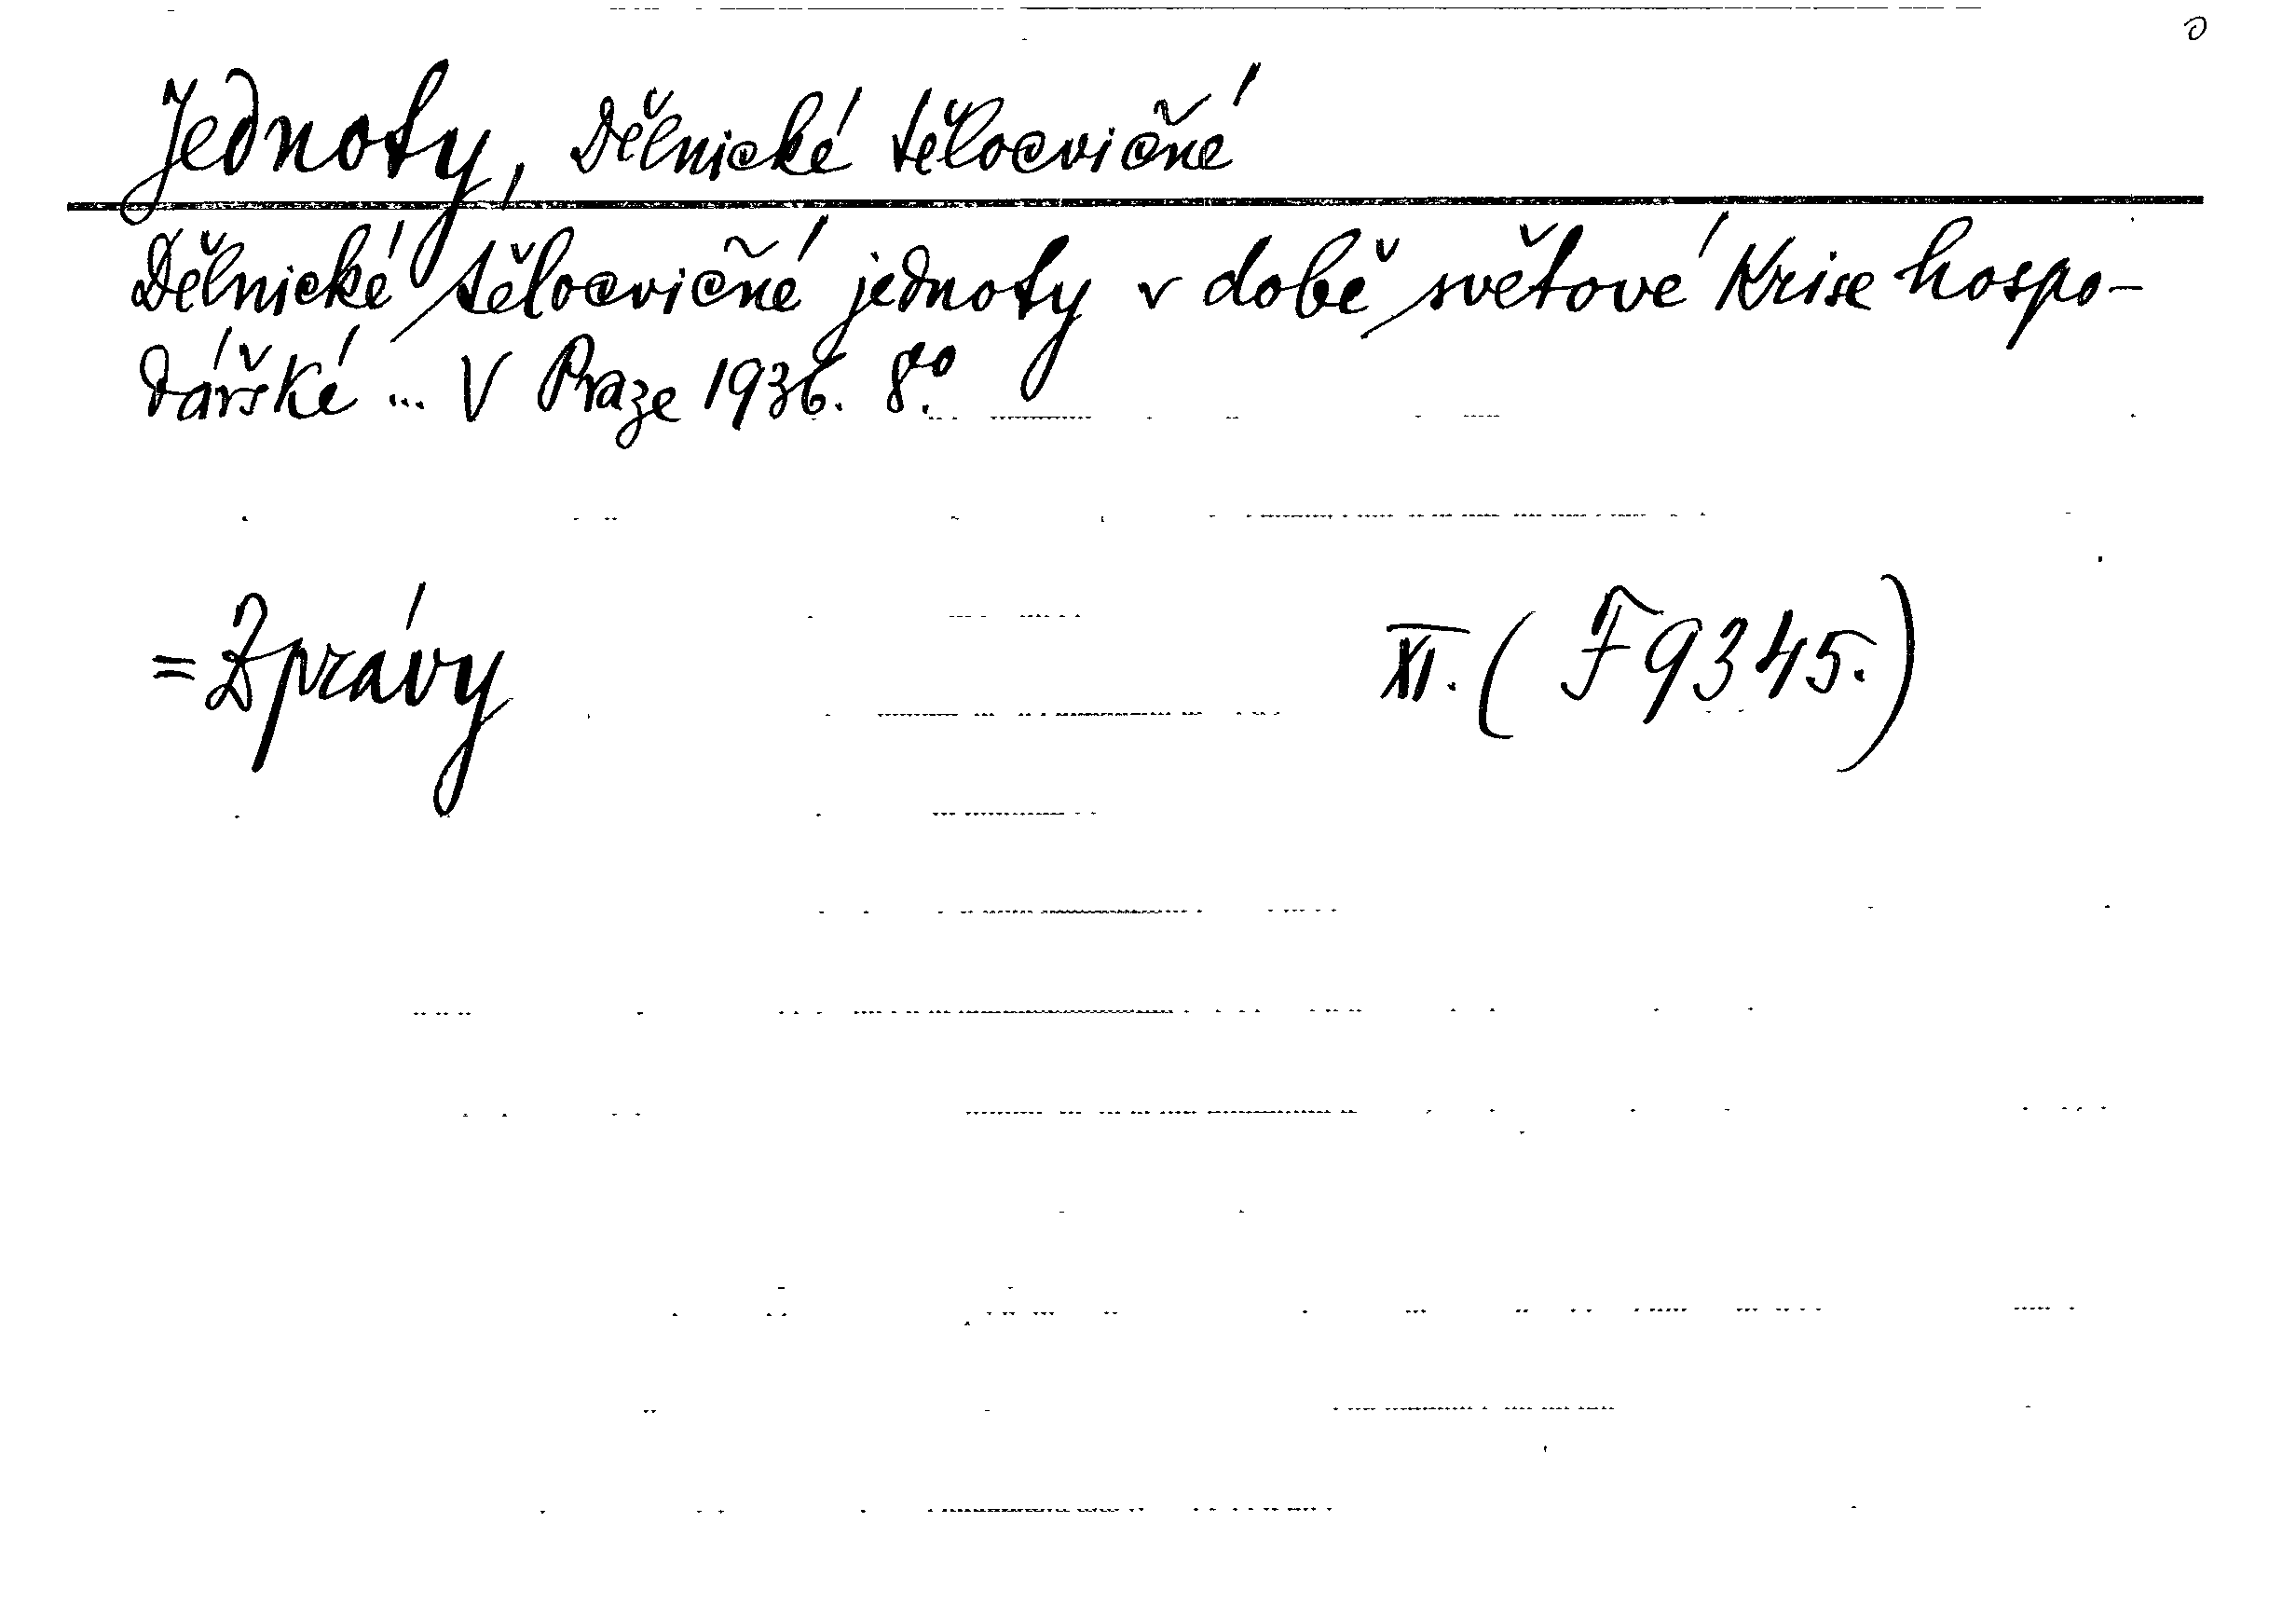 Jednoty, Dělnické tělocvičné
Dělnické tělocvičné jednoty v době světové krise hospo-
dářské ... V Praze 1936. 8°.
= Zprávy XI. (F 9345.)